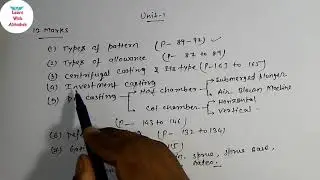 Learn
With
Abhishek
Unit-1
12 Marks
(1) Types of pattern (P- 89-93) ✓
(2) Types of allowance (P- 87 to 89)
(3) Centrifugal casting & Its type (P-163 to 165)
(4) Investment casting
(5) casting Hot chamber Submerged Plunger
Air Blown Machine
Col chamber Horizontal
Vertical
(P- 143 to 146)
(6) (P- 132 to 134)
sprue, sprue base,